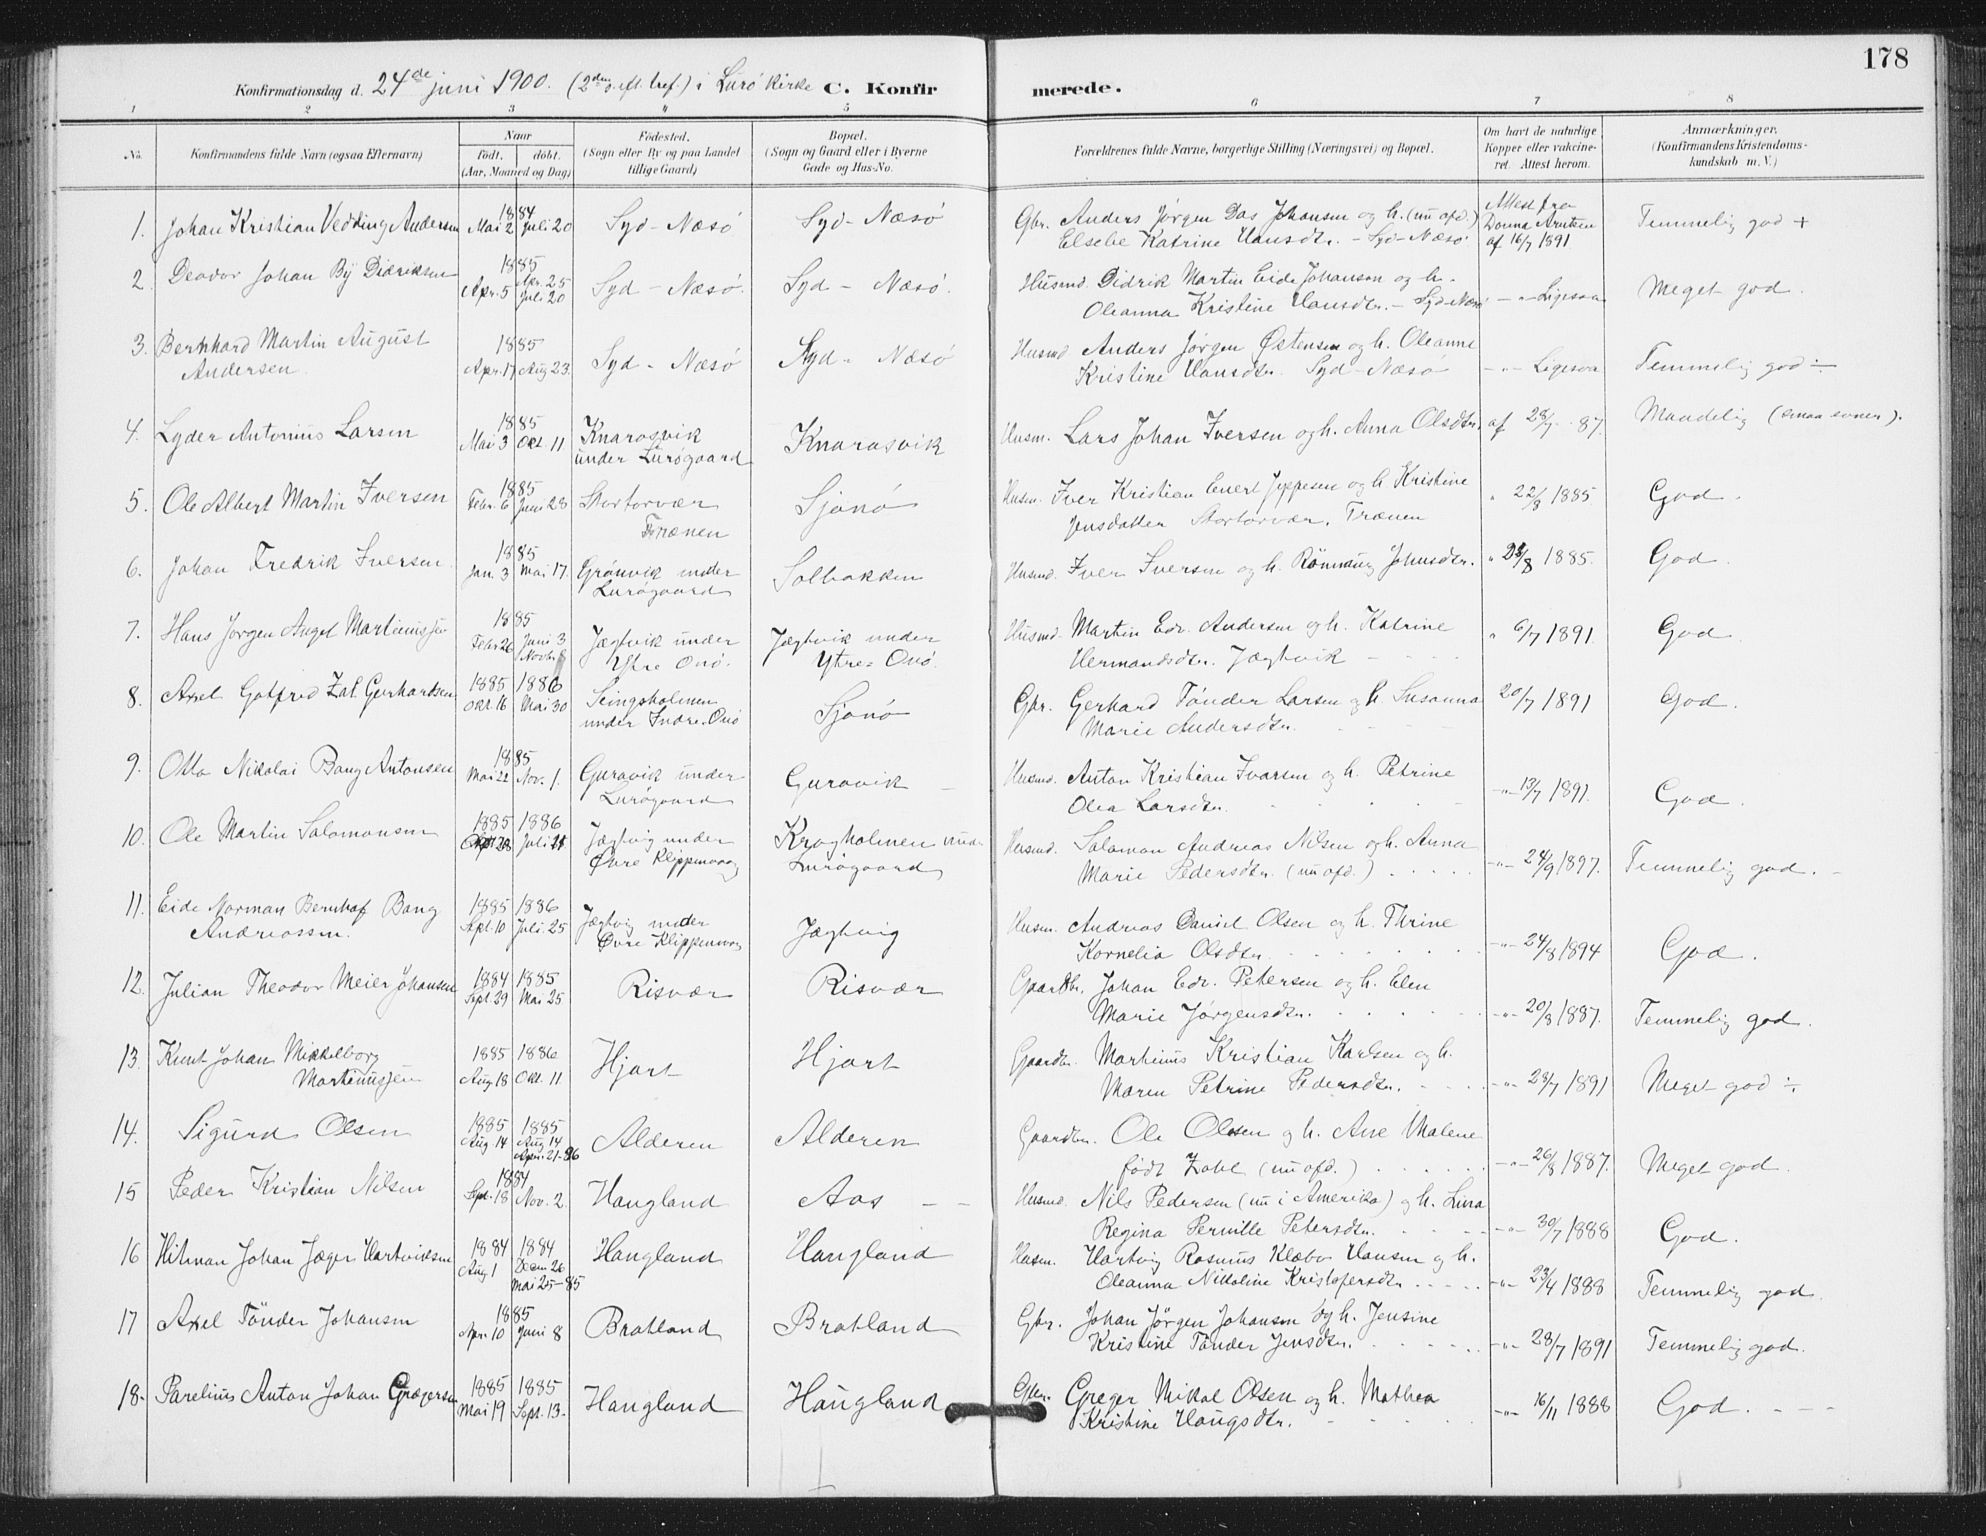 178
Konfirmationsdag d. 24de juni 1900. i Lurø Kirke C. Konfirmerede.
1 2 3 4 5 6 7 8
No. Konfirmandens fulde Navn (ogsaa Efternavn) Naar født. døbt. (Aar, Maaned og Dag) Fødested. (Sogn eller By og paa Landet tillige Gaard) Bopæl. (Sogn og Gaard eller i Byerne Gade og Hus-No. Forældrenes fulde Navne, borgerlige Stilling (Næringsvei) og Bopæl. Om havt de naturlige Kopper eller vakcineret. Attest herom. Anmærkninger. (Konfirmandens Kristendomskundskab m. V.)
1. Johan Kristian Vedding Andersen 1884 Mai 2 Juli 20 Syd-Næsø Syd-Næsø Gbr. Anders Jørgen Das Johansen og h. (nu afd.) Attest fra Temmelig god +
Elsebe Katrine Hansdtr. - Syd-Næsø Dønna af 16/7 1891
2. Deodor Johan By Didriksen 1885 Apr. 5 Apr. 25 Juli 20 Syd-Næsø. Syd-Næsø. Husmd. Didrik Martin Eide Johanson og h. Oleanna Kristine Hansdtr. - Syd-Næsø - " - Ligesaa Meget god.
3. Bernhard Martin August Andersen. 1885 Apr. 17 Aug 23. Syd-Næsø Syd-Næsø Husmd. Anders Jørgen Østensen og h. Oleanne Kristine Hansdtr. Syd-Næsø - " - Ligesaa Temmelig god ÷
4. Lyder Antonius Larsen 1885 Mai 3 Okt. 11 Knarasvik under Lurøgaard Knarasvik Husm. Lars Johan Iversen og h. Anna Olsdtr. af 28/7 87. Maadelig (smaa evner).
5. Ole Albert Martin Iversen 1885 Febr. 6 Juni 28 Stortorvær Trænen Sjonø Husm. Iver Kristian Enert Jeppesen og h Kristine Jensdatter Stortorvær. Trænen " 22/8 1885. God.
6. Johan Fredrik Iversen 1885 Jan. 3 Mai 17. Grønvik under Lurøgaard Solbakken Husmd. Iver Iversen og h. Rønnaug Johnsdtr. " /8 1885. God.
7. Hans Jørgen Angel Martinussen 1885 Febr 26 Juni 3 Novbr. 8 Jægtvik under Ytre Onø. Jægtvik under Ytre Onø. Husmd. Martin Edv. Andersen og h. Katrine Hermandsdtr. Jægtvik - " 6/7 1891. God
8. Axel Gotfred Zal. Gerhardsen 1885 Okt. 16 1886 Mai 30 Seingsholmen under Indre Onø Sjonø Gbr. Gerhard Tønder Larsen og h Susanna Marie Andersdtr. 20/7 1891 God.
9. Otto Nikolai Bang Antonsen 1885 Mai 22 Nov. 1. Guravik under Lurøgaard Guravik Husmd. Anton Kristian Ivarsen og h. Petrine Olea Larsdtr. - " - 13/7 1891. God.
10. Ole Martin Salomonsen 1885 1886 Juli 11 Jægtvig under Øvre Klippenvaag Kragholmen und. Lurøgaard Husmd. Salomon Andreas Nilsen og h. Anna Marie Pedersdtr. (nu afd.) - " - 24/9 1897. Temmelig god.
11. Eide Norman Bernhof Bang Andreassen. 1885 Sept. 10 1886 Juli 25 Jægtvig under Øvre Klippenvaag Jægtvig Husm. Andreas Daniel Olsen og h. Thrine Kornelia Olsdtr. - " - 24/8 1894 God.
12. Julian Theodor Meier Johansen 1884 Sept. 29 1885 Mai 25 Risvær Risvær Gaardbr. Johan Edv. Petersen og h. Elen Marie Jørgensdtr. - " - 20/8 1887. Temmelig god.
13. Knut Johan Mikkelborg Martinussen 1885 Aug 18 1886 Okt. 11 Hjart Hjart Gaardbr. Martinus Kristian Karlsen og h. Maren Petrine Pedersdtr. - " - 28/7 1891 Meget god ÷.
14. Sigurd Olsen 1885 Aug. 14 1885 Aug 14 Apri. 21-86 Alderen Alderen Gaardbr. Ole Olsen og h. Ane Malene født Zahl (nu afd.) - " - 26/8 1887. Meget god.
15 Peder Kristian Nilsen 1884 Sept. 18 Nov. 2. Haugland Aas Husmd. Nils Pedersen (nu i Amerika) og h. Lina Regina Pernille Petersdtr. - " - 30/7 1888 God.
16 Hitman Johan Jæger Hartviksen 1884 Aug 1 1884 Decm 26 Mai 25-85 Haugland Haugland Husm. Hartvig Rasmus Klæbo Hansen og h. Oleanna Nikoline Kristofersdtr. - " - 23/4 1888 Temmelig god.
17 Axel Tønder Johansen 1885 Apr. 10 Juni 8 Bratland Bratland Gbr. Johan Jørgen Johansen og h. Jensine Kristine Tønder Jensdtr. - " - 28/7 1891 Temmelig god.
18. Parelius Anton Johan Grægersen 1885 Mai 19 1885 Sept. 13. Haugland Haugland Gbr. Greger Mikal Olsen og h. Mathea Kristine Haugsdtr. - " - 16/11 1888 God.